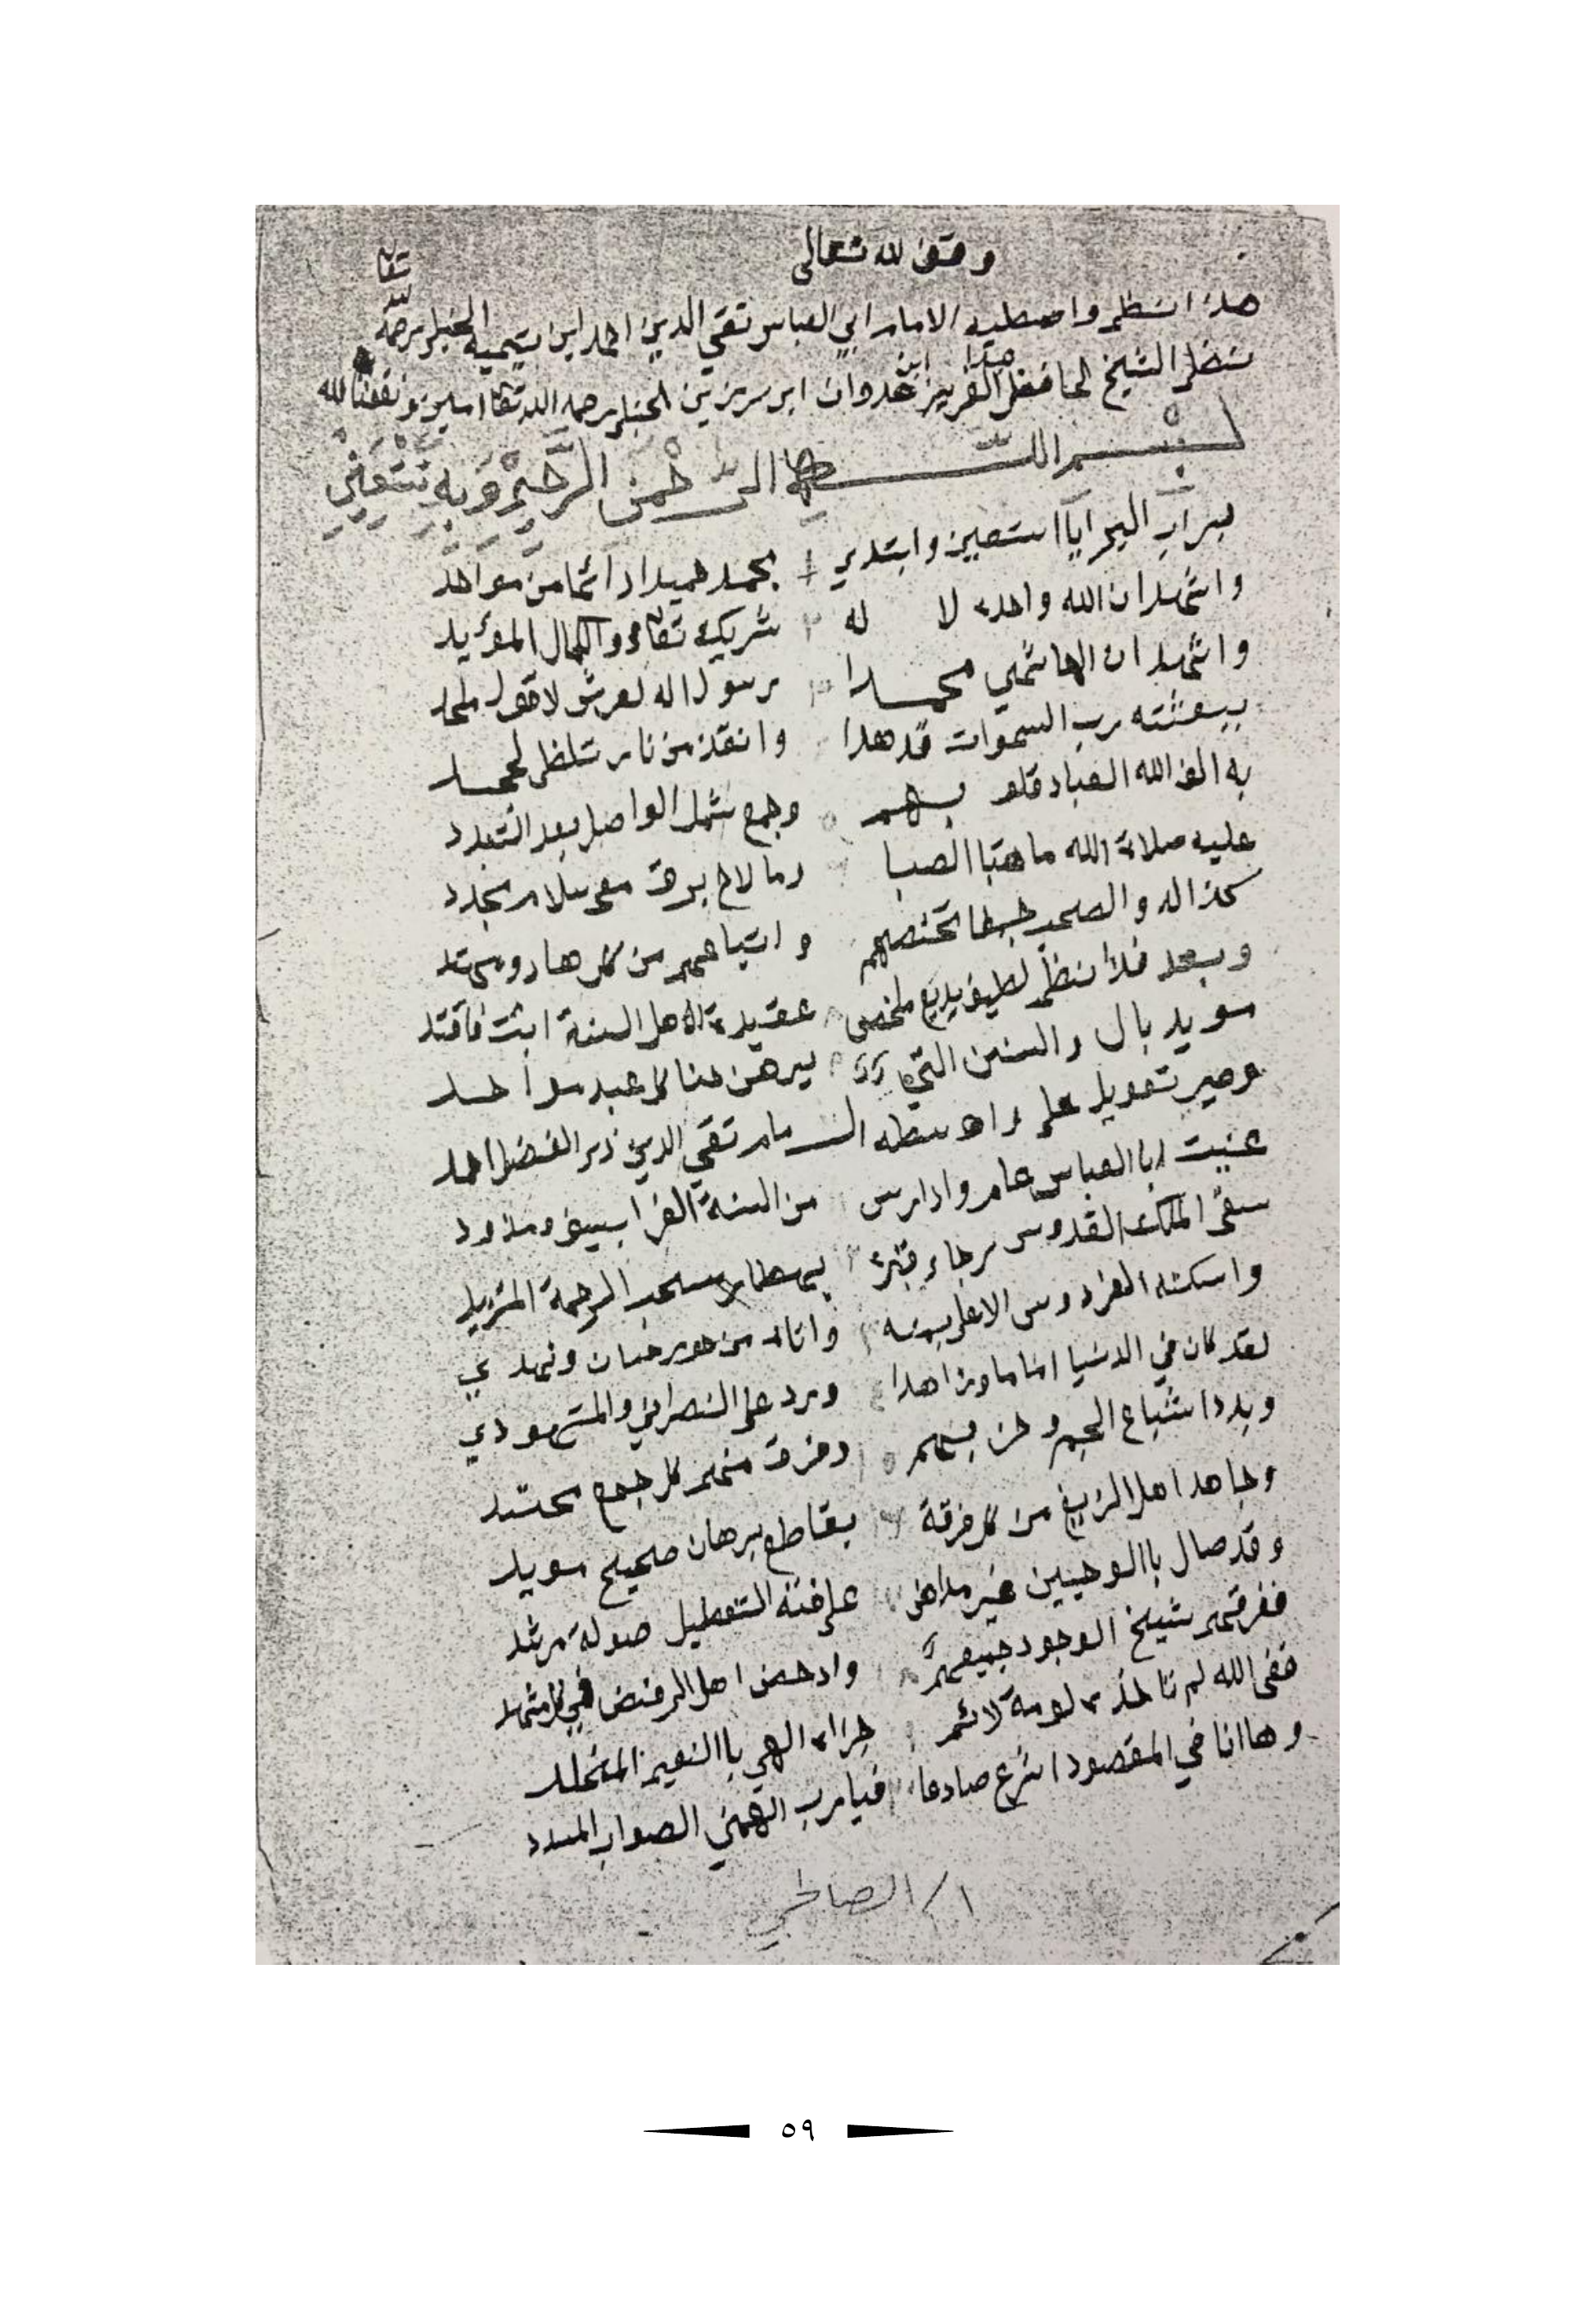 وقف لله تعالى
هذا نظم واسطية الامام ابي العباس تقي الدين احمد ابن تيمية الحنبلي رحمه الله تعا
نظم الشيخ الحافظ عبد العزيز ابن عدوان ابن رزين الحنبلي رحمه الله تعا امين ونفعنا الله
بسم الله الرحمن الرحيم وبه نستعين
برب البرايا استعين وابتدي بحمد حميدا دائما من موحد
واشهد ان الله واحد لا له شريك تعالى والكمال المؤيد
واشهد ان الهاشمي محمدا رسول اله العرش لا قول ملحد
ببعثته رب السموات قد هدا وانقذ من نار تلظى لجحد
به الف الله العباد قلوبهم وجمع شمل الواصل بعد التبدد
عليه صلاة الله ما هبا الصبا وما لاح برق مع سلام مجدد
كذا اله والصحب جمعا تخصهم واتباعهم من كل هاد ومهتد
وبعد فذا نظم لطيف بديع ملخص عقيدة لاهل السنة اثبت فاقتد
سويد بال والسنن التي يبرهن عنا كل عبد موحد
وصير تعويل على واسطه الامام تقي الدين ذو الفضل احمد
عنيت ابا العباس عامر دارس من السنة الغرا بسيف ومذود
سقى الملك القدوس رجاء قبره بمهطار سحب الرحمة المتزيد
واسكنه الفردوس الاعلى بمنه واتاه من حور حسان ونهدي
لقد كان في الدنيا اماما وزاهدا ورد على النصراني والمتهودي
وبدد اشياع الجهم وحزبهم وفرق منهم كل جمع محتشد
وجاهد اهل الزيغ من كل فرقة بقاطع برهان صحيح سويد
وقد صال باالوحيين غير مداهن على فئة التعطيل صولة مرشد
ففرقهم شيخ الوجود جميعهم وادحض اهل الرفض في كل مشهد
ففى الله لم تاخذه لومة لائم جزاه الهي باالنعيم المخلد
وها انا في المقصود اشرع صادعا فيا رب الهمني الصواب المسدد
١/ الصالحي
٥٩